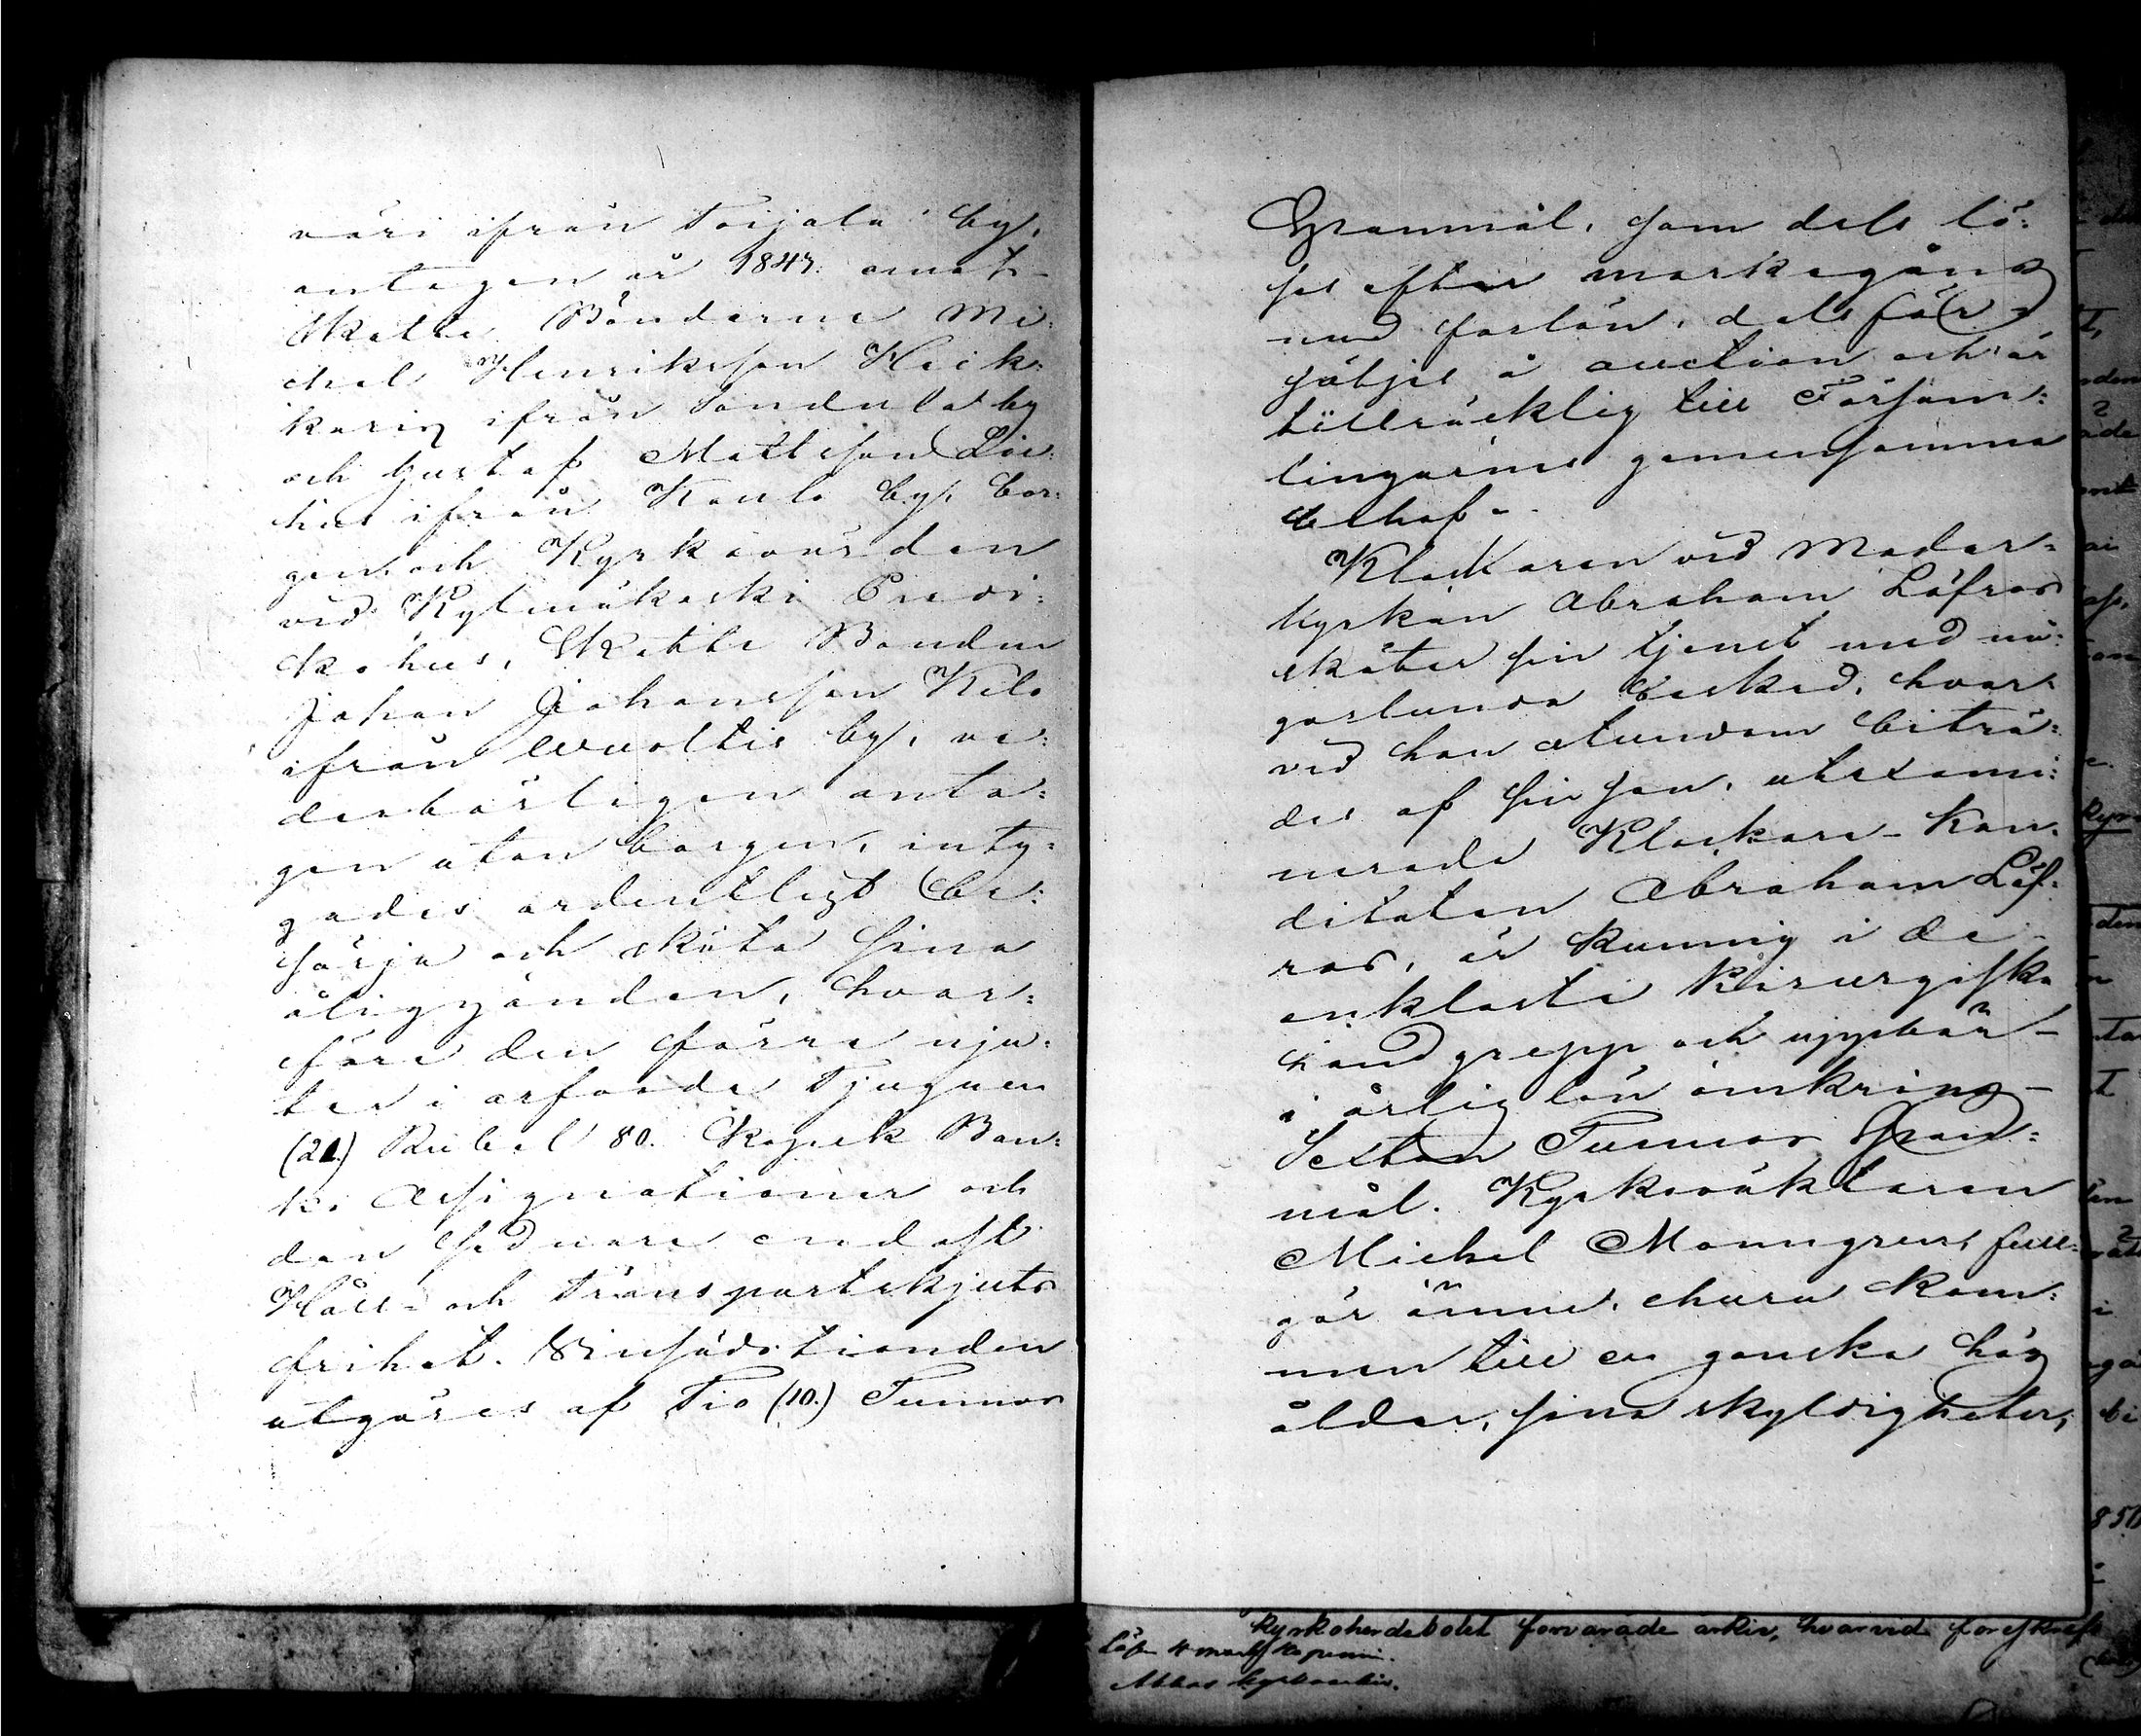 näri ifrån Toijala by,
antagen år 1847. samt
Skatte Bönderne Mi-
chel Henriksson Heik-
karin ifrån Sondula by
och Gustaf Mattsson Loi-
his ifrån Kanta by, bor-
gen, och Kyrkovärden
vid Kylmäkoski Predi-
kohus, Skatte Bonden
Johan Johansson Kilo
ifrån Wuoltis by, ve-
derbörligen anta-
gen utan borgen, inty-
gades ordentligt be-
sörja och sköta sina
åligganden, hvar-
före den förre nju-
ter i arfvode Tjuguen
(21.) Rubel 80. Kopek Ban-
k. Assignationer och
den sednare endast
Håll- och Transportskjuts
frihet. Vinsädstionden
utgöres af Tio (10.) Tunnor
Spannmål, som dels lö-
ses efter markegång
med förlön, dels för-
säljes å auction och är
tillräcklig till Församm-
lingarnes gemensamma
behof.
Klockaren vid Moder-
kyrkan Abraham Löfroos
sköter sin tjenst med nå-
gorlunda besked, hvar-
vid han stundom biträ-
des af sin son, utexami-
nerade Klockare-Kan-
ditaten Abraham Löf-
roos, är kunnig i de
enklaste kirurgiska
handgrepp och uppbär
i årlig lön omkring
Sexton Tunnor Spann-
mål. Kyrkoväktaren
Michel Manngren, full-
gör ännu, ehuru kom-
men till en ganska hög
ålder, sina skyldigheter,
kyrkoherdebolet förvarade arkiv, hvarvid föreskrefs